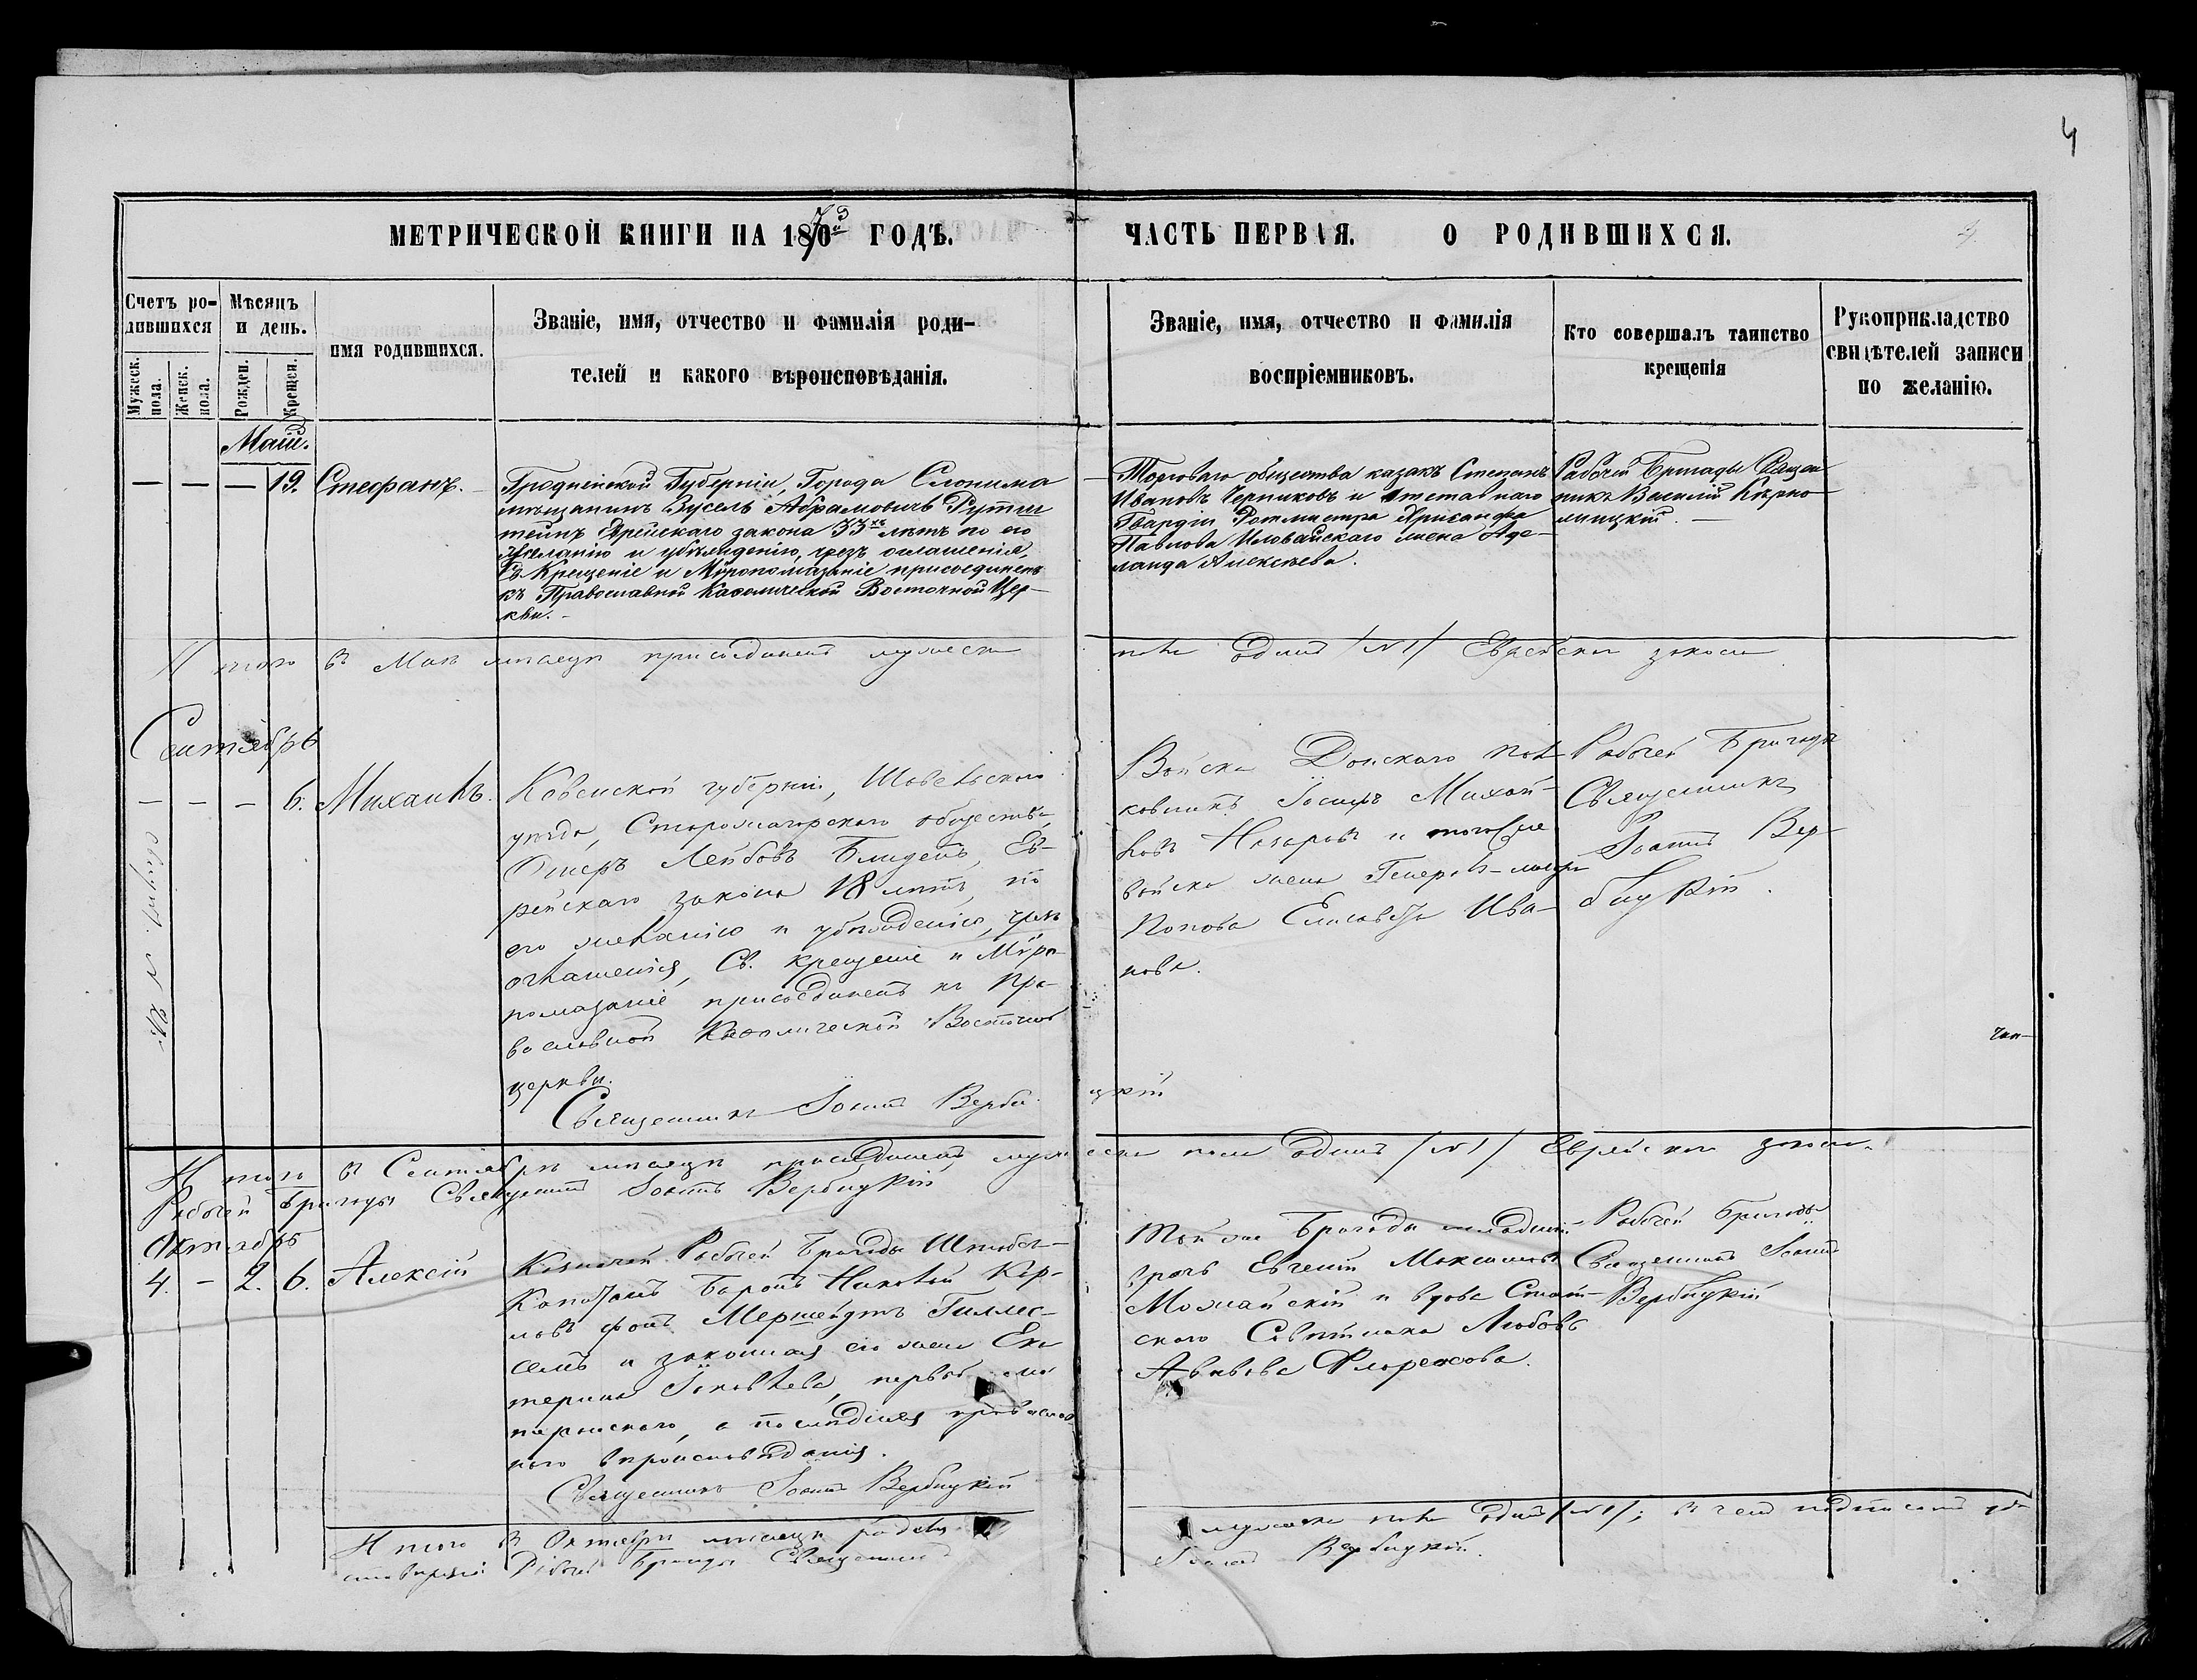 4
МЕТРИЧЕСКОЙ КНИГИ НА 1873 ГОДЪ.
ЧАСТЬ ПЕРВАЯ. О РОДИВШИХСЯ.
Счетъ ро-
дившихся
Мужеск.
пола.
Женск.
пола.
Мѣсяцъ
и день.
Рожден.
Крещен.
имя родившихся.
Званіе, имя, отчество и фамилія роди-
телей и какого вѣроисповѣданія.
Званіе, имя, отчество и фамилія
воспріемниковъ.
Кто совершалъ таинство
крещенія
Рукоприкладство
свидѣтелей записи
по желанію.
Маій.
— — — 19. Стефанъ.
Гродненской Губерніи, Города Слонима
мѣщанинъ Зусель Абрамовичъ Рутш
тейнъ Еврейскаго закона 33хъ лѣтъ по его
желанію и убѣжденію, чрезъ оглашенія,
Св. Крещеніе и Мѵропомазаніе присоединенъ
къ Православной Каѳолической Восточной Цер-
кви.
Торговаго общества казакъ Степанъ
Ивановъ Черниковъ и отставнаго
Гвардіи Ротмистра Хрисанфа
Павлова Иловайскаго жена Аде-
лаида Алексѣева.
Рабочей Бригады Священ
никъ Василій
Итого въ Маѣ мѣсяцѣ присоединенъ мужеска
пола одинъ /№1/ Еврейскаго закона
Сентябрь
— — — 6. Михаилъ.
Ковенской губерніи, Шавельскаго
уѣзда, общества,
Лейбовъ Ев-
рейскаго закона 18 лѣтъ, по
его желанію и убѣжденію, чрезъ
оглашенія, Св. Крещеніе и Мѵро-
помазаніе присоединенъ къ Пра-
вославной Каѳолической Восточной
церкви.
Священникъ Іоаннъ Верби-
цкій
Войска Донскаго пол-
ковникъ Іосифъ Михай-
ловъ Назаровъ и того же
войска жена Генералъ-маіора
Попова Елисавета Ива-
нова.
Рабочей Бригады
Священникъ
Іоаннъ Вер-
бицкій.
Итого въ Сентябрѣ мѣсяцѣ присоединенъ мужеска пола одинъ /№1/ Еврейскаго закона.
Рабочей Бригады Священникъ Іоаннъ Вербицкій
Октябрь
4. - 2. 6. Алексій
Казначей Рабочей Бригады Штабсъ-
Капитанъ Баронъ Николай Кар-
ловъ фонъ Гиллес-
семъ и законная его жена Ека
терина Іаковлева, первый лю
теранскаго, а послѣдняя православ
наго вѣроисповѣданія.
Священникъ Іоаннъ Вербицкій
Той же Бригады младшій
врачъ Евгеній Максимовъ
Можайскій и вдова Стат-
скаго Совѣтника Любовь
Рабочей Бригады
Священникъ Іоаннъ
Вербицкій
Итого въ Октябрѣ мѣсяцѣ
мужеска пола одинъ /№1/; въ чемъ
Рабочей Бригады Священникъ
Іоаннъ Вербицкій.